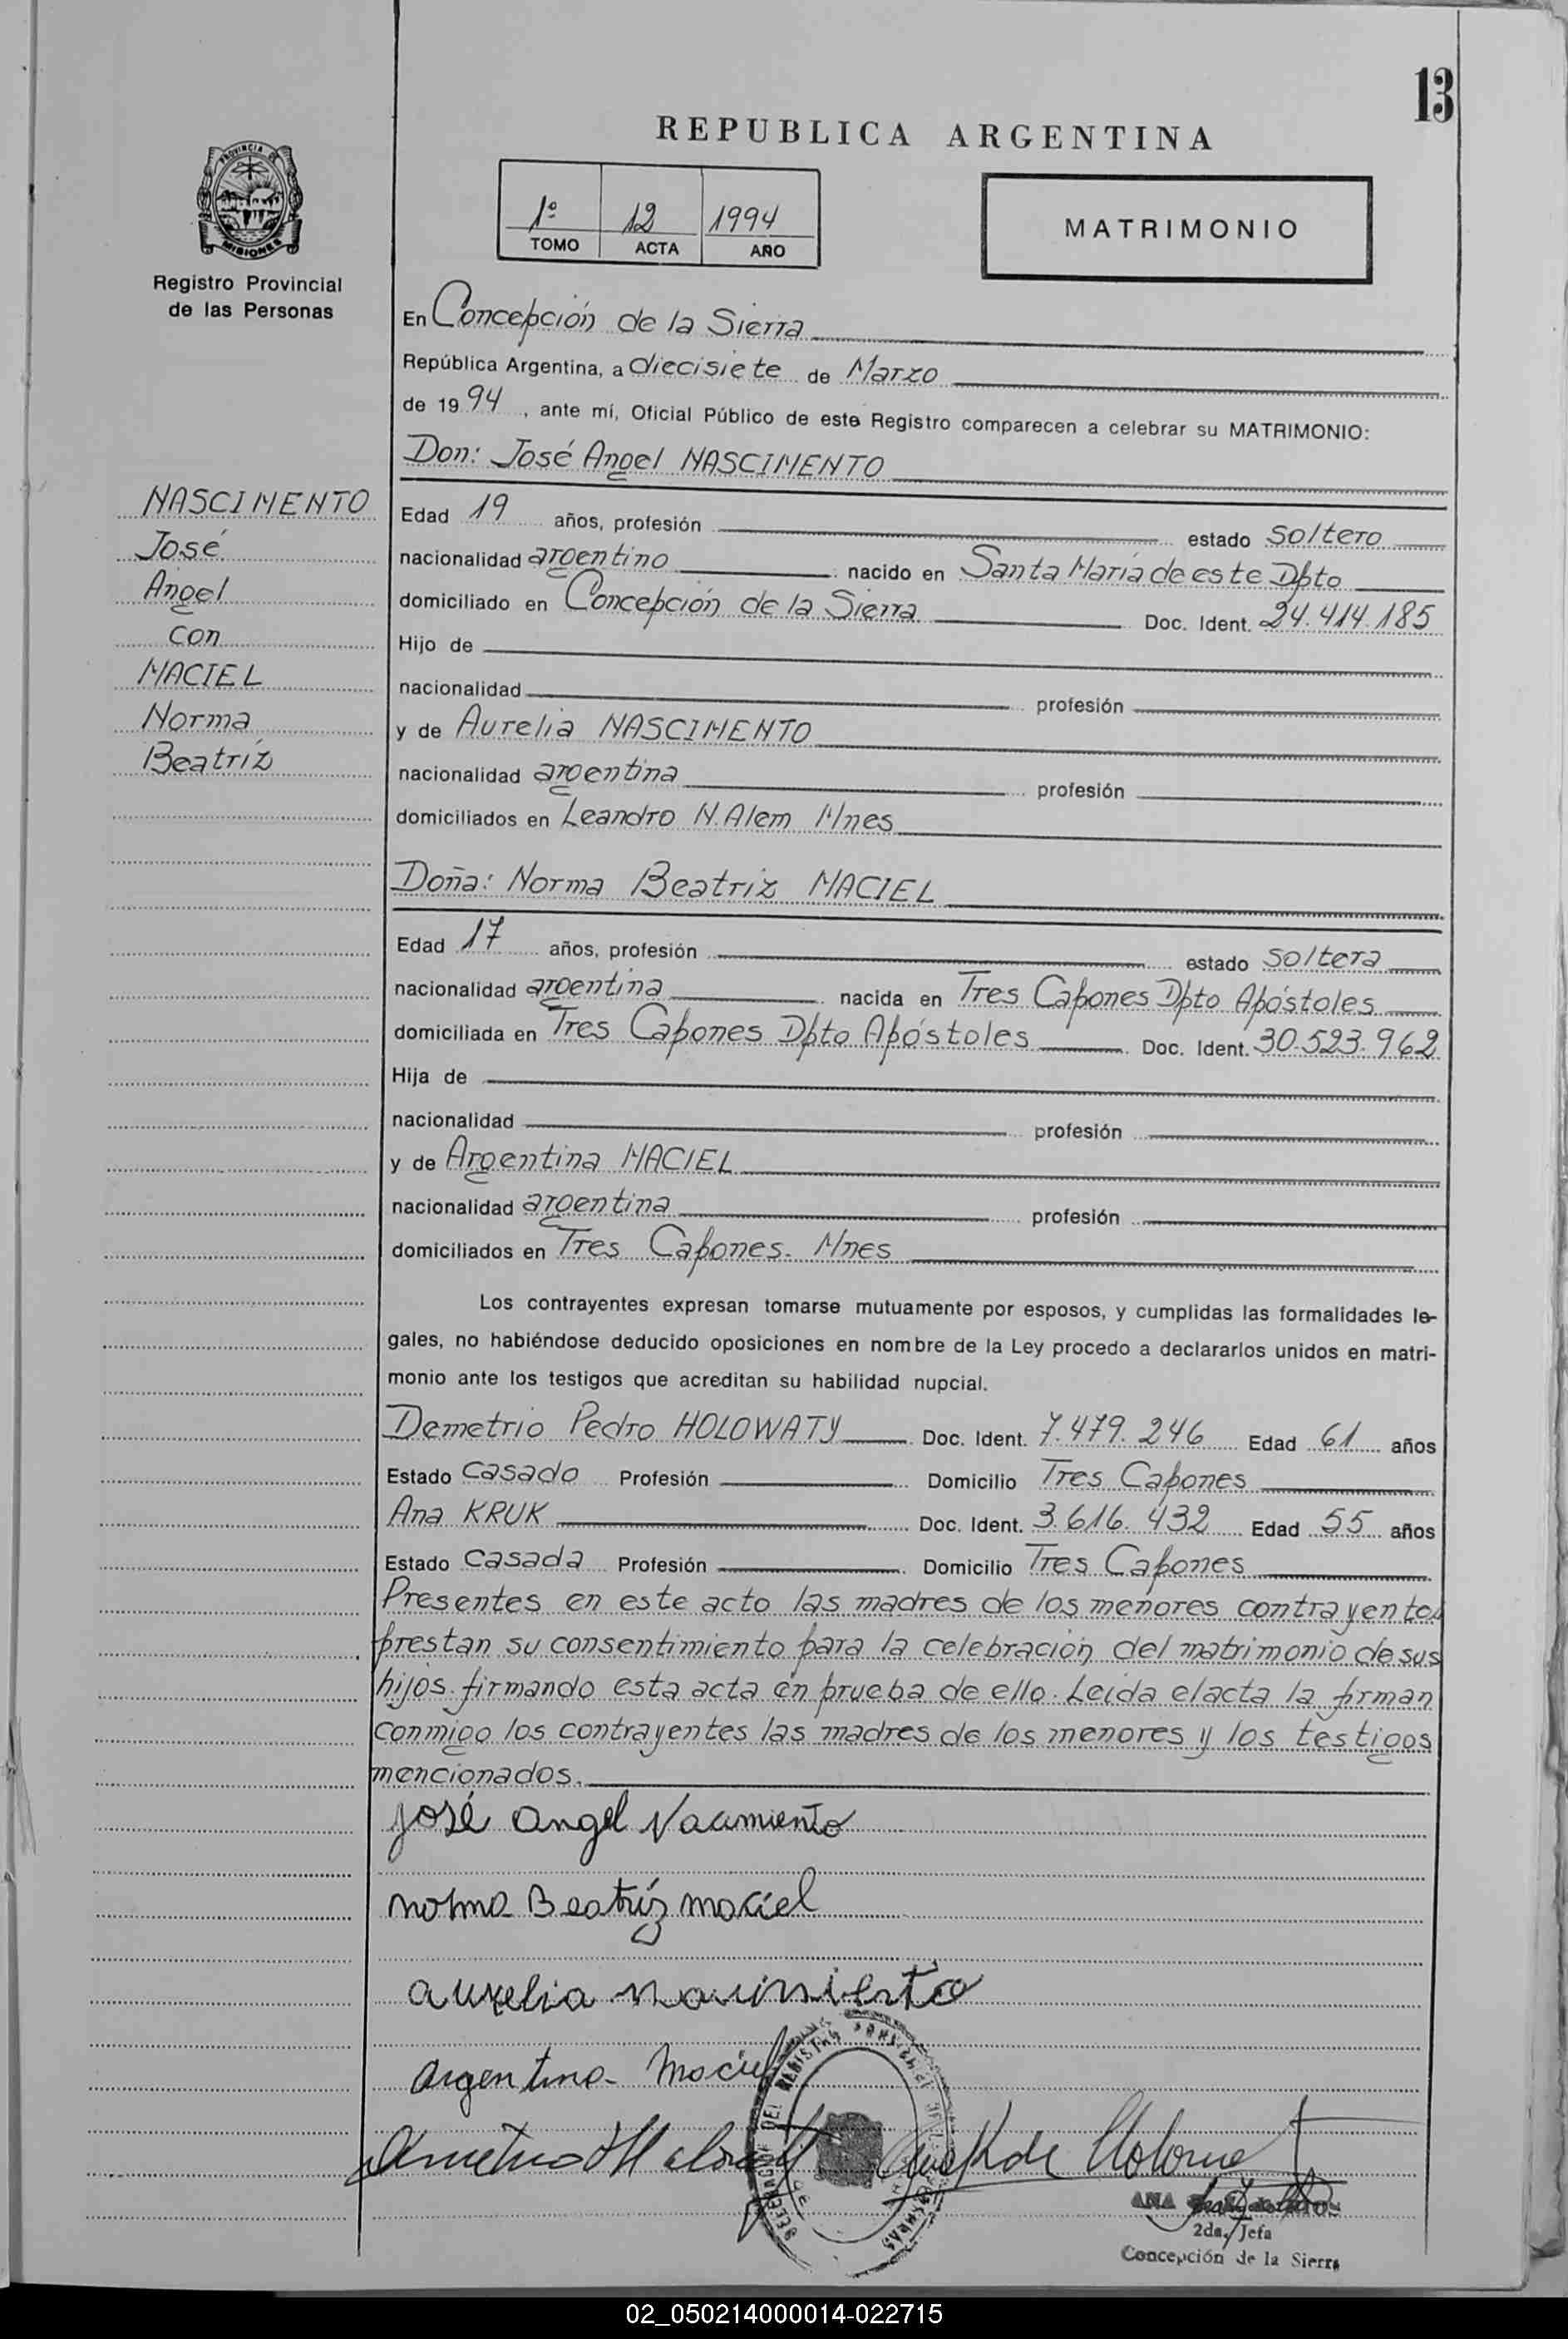 13
REPUBLICA ARGENTINA
PROVINCIA DE
MISIONES
Registro Provincial
de las Personas
1º 12 1994
TOMO ACTA AÑO
MATRIMONIO
En Concepción de la Sierra
República Argentina, a diecisiete de Marzo
de 19 94, ante mí, Oficial Público de este Registro comparecen a celebrar su MATRIMONIO:
Don: José Angel NASCIMENTO
NASCIMENTO
José
Angel
con
MACIEL
Norma
Beatríz
Edad 19 años, profesión estado soltero
nacionalidad argentino nacido en Santa María de este Dpto
domiciliado en Concepción de la Sierra Doc. Ident. 24.414.185
Hijo de
nacionalidad profesión
y de Aurelia NASCIMENTO
nacionalidad argentina profesión
domiciliados en Leandro N. Alem Mnes
Doña: Norma Beatriz MACIEL
Edad 17 años, profesión estado soltera
nacionalidad argentina nacida en Tres Capones Dpto Apóstoles
domiciliada en Tres Capones Dpto Apóstoles Doc. Ident. 30.523.962
Hija de
nacionalidad profesión
y de Argentina MACIEL
nacionalidad argentina profesión
domiciliados en Tres Capones. Mnes
Los contrayentes expresan tomarse mutuamente por esposos, y cumplidas las formalidades le-
gales, no habiéndose deducido oposiciones en nombre de la Ley procedo a declararlos unidos en matri-
monio ante los testigos que acreditan su habilidad nupcial.
Demetrio Pedro HOLOWATY Doc. Ident. 7.479.246 Edad 61 años
Estado casado Profesión Domicilio Tres Capones
Ana KRUK Doc. Ident. 3.616.432 Edad 55 años
Estado casada Profesión Domicilio Tres Capones
Presentes en este acto las madres de los menores contrayentes
prestan su consentimiento para la celebración del matrimonio de sus
hijos firmando esta acta en prueba de ello. Leída el acta la firman
conmigo los contrayentes las madres de los menores y los testigos
mencionados.
José Angel Nacimiento
Norma Beatríz Maciel
Aurelia Nacimiento
Argentina Maciel
DEL REGISTRO
ANA
2da. Jefa
Concepción de la Sierra
02_050214000014-022715